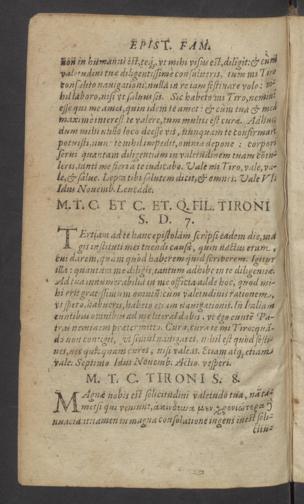 EPIST. FAM.
non inhumanus est, teq́, vt mihi visus est, diligit: & cùm
valetudini tuæ diligentissimè consulueris, tum mi Tiro
consulito nauigationi: nulla in re iam festinare volo: ni-
hil laboro, nisi vt saluus sis. Sic habeto mi Tiro, neminē
esse qui me amet, quin idem te amet: & cùm tua & mea
maximè interest te valere, tum multis est curæ. Adhuc
dum mihi nullo loco deesse vis, nunquam te confirmare
potuisti, nunc te nihil impedit, omnia depone: corpori
serui: quantam diligentiam in valetudinem tuam cōtu-
leris, tanti me fieri à te iudicabo. Vale mi Tiro, vale, va-
le, & salue. Lepta tibi salutem dicit, & omnes. Vale VII
Idus Nouemb. Leucade.
M. T. C. ET C. ET. Q. FIL. TIRONI
S. D. 7.
TErtiam ad te hanc epistolam scripsi eodem die, ma-
gis instituti mei tuendi causâ, quin nactus eram,
cui darem, quàm quòd haberem quid scriberem. Igitur
illa: quantùm me diligis, tantum adhibe in te diligentiæ.
Ad tua innumerabilia in me officia adde hoc, quod mi-
hi erit gratissimum omnium: cùm valetudinis rationem,
vt spero, habueris, habeto etiam nauigationis. In Italiam
euntibus omnibus ad me literas dabis, vt ego euntē Pa-
tras neminem prætermitto. Cura, cura te mi Tiro: quā-
do non contigit, vt simul nauigares, nihil est quod festi-
nes, nec quicquam cures, nisi valeas. Etiam atq, etiam
vale. Septimo Idus Nouemb. Actio vesperi.
M. T. C. TIRONI S. 8.
MAgnæ nobis est solicitudini valetudo tua, nā ta-
metsi qui veniunt,
nuntiant, tamen in magna consolatione ingens inest soli-
citu-